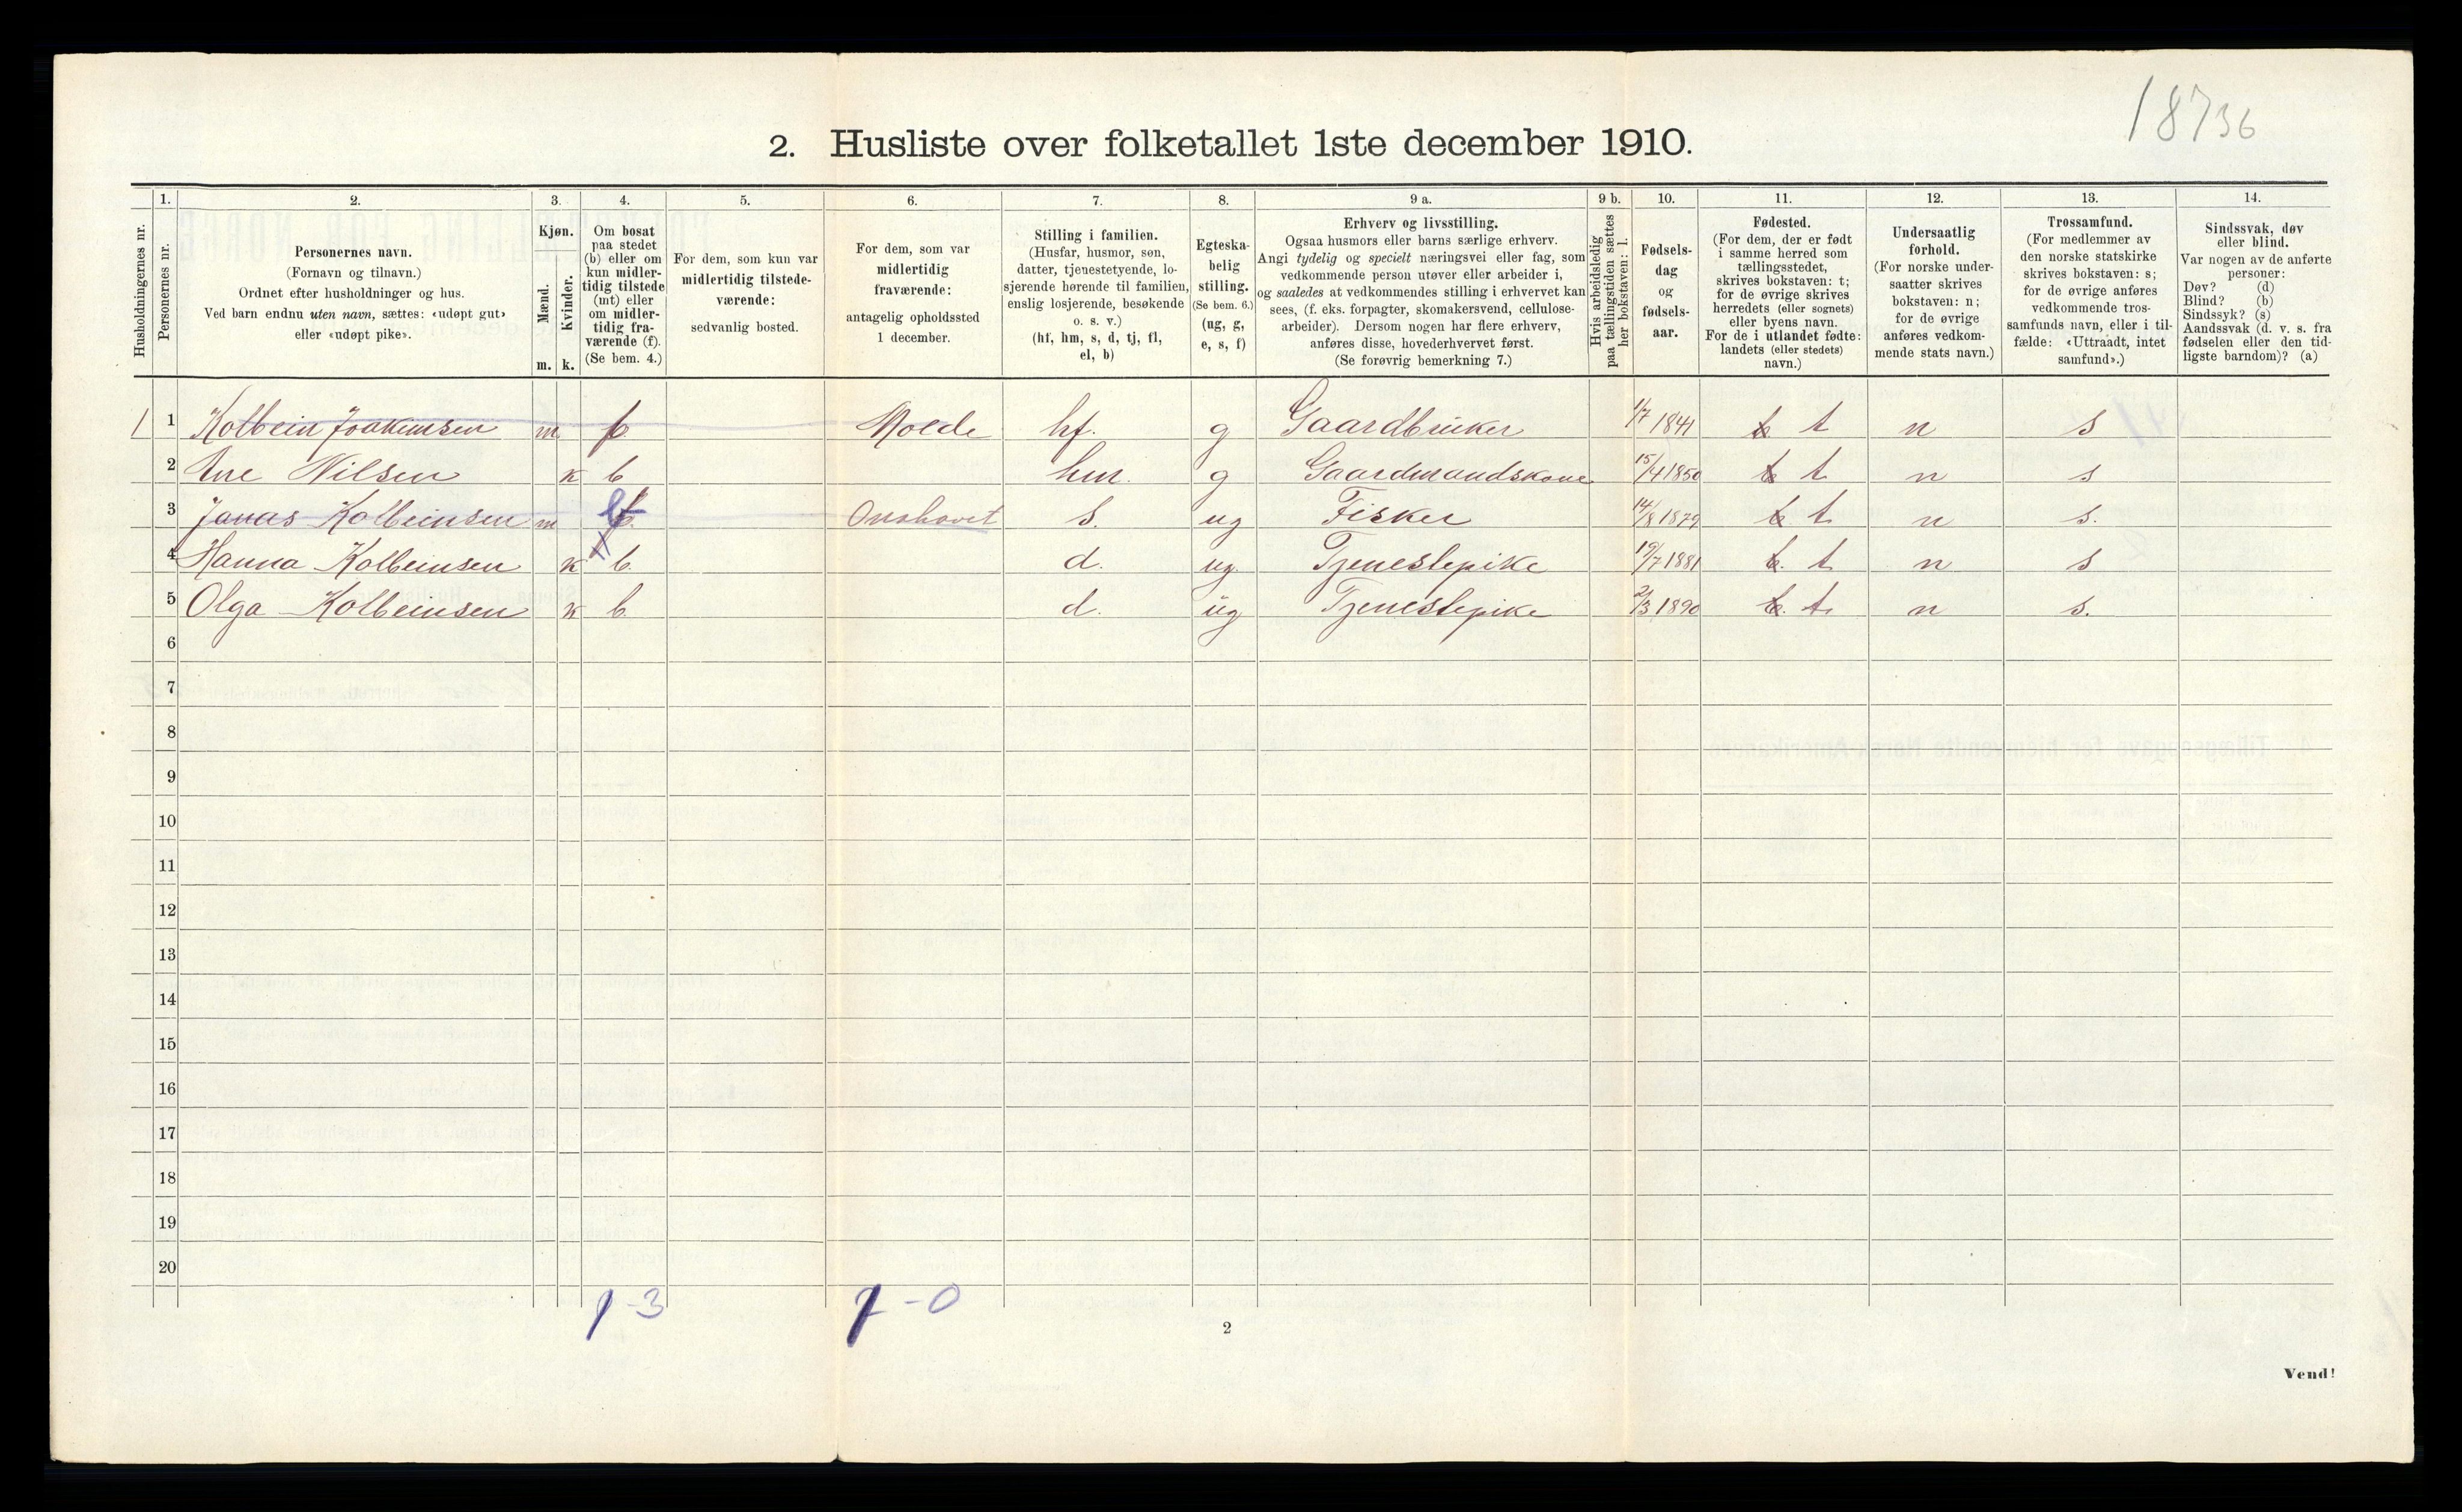 18736
2. Husliste over folketallet 1ste december 1910.
1. 2. 3. 4. 5. 6. 7. 8. 9 a. 9 b. 10. 11. 12. 13. 14.
Husholdningernes nr.
Personernes nr.
Personernes navn.
(Fornavn og tilnavn.)
Ordnet efter husholdninger og hus.
Ved barn endnu uten navn, sættes: «udøpt gut»
eller «udøpt pike».
Kjøn.
Mænd.
Kvinder.
m. k.
Om bosat
paa stedet
(b) eller om
kun midler-
tidig tilstede
(mt) eller
om midler-
tidig fra-
værende (f).
(Se bem. 4.)
For dem, som kun var
midlertidig tilstede-
værende:
sedvanlig bosted.
For dem, som var
midlertidig
fraværende:
antagelig opholdssted
1 december.
Stilling i familien.
(Husfar, husmor, søn,
datter, tjenestetyende, lo-
sjerende hørende til familien,
enslig losjerende, besøkende
o. s. v.)
(hf, hm, s, d, tj, fl,
el, b)
Egteska-
belig
stilling.
(Se bem. 6.)
(ug, g,
e, s, f)
Erhverv og livsstilling.
Ogsaa husmors eller barns særlige erhverv.
Angi tydelig og specielt næringsvei eller fag, som
vedkommende person utøver eller arbeider i,
og saaledes at vedkommendes stilling i erhvervet kan
sees, (f. eks. forpagter, skomakersvend, cellulose-
arbeider). Dersom nogen har flere erhverv,
anføres disse, hovederhvervet først.
(Se forøvrig bemerkning 7.)
Hvis arbeidsledig
paa tællingstiden sættes
her bokstaven: l.
Fødsels-
dag
og
fødsels-
aar.
Fødested.
(For dem, der er født
i samme herred som
tællingsstedet,
skrives bokstaven: t;
for de øvrige skrives
herredets (eller sognets)
eller byens navn.
For de i utlandet fødte:
landets (eller stedets)
navn.)
Undersaatlig
forhold.
(For norske under-
saatter skrives
bokstaven: n;
for de øvrige
anføres vedkom-
mende stats navn.)
Trossamfund.
(For medlemmer av
den norske statskirke
skrives bokstaven: s;
for de øvrige anføres
vedkommende tros-
samfunds navn, eller i til-
fælde: «Uttraadt, intet
samfund».)
Sindssvak, døv
eller blind.
Var nogen av de anførte
personer:
Døv? (d)
Blind? (b)
Sindssyk? (s)
Aandssvak (d. v. s. fra
fødselen eller den tid-
ligste barndom)? (a)
1 1 Kolbein Joakimsen m f Molde hf. g Gaardbruker 1/7 1841 t n s
2 Ane Nilsen k b hm. g Gaardmandskone 15/4 1850 t n s
3 Jonas Kolbeinsen m s. ug Fisker 14/8 1879 t n s.
4 Hanna Kolbeinsen k b. d. ug. Tjenestepike 19/7 1881 t n s
5 Olga Kolbeinsen k b d. ug Tjenestepike 21/3 1890 t. n s.
6
7
8
9
10
11
12
13
14
15
16
17
18
19
20
1-3 1-0
2
Vend!